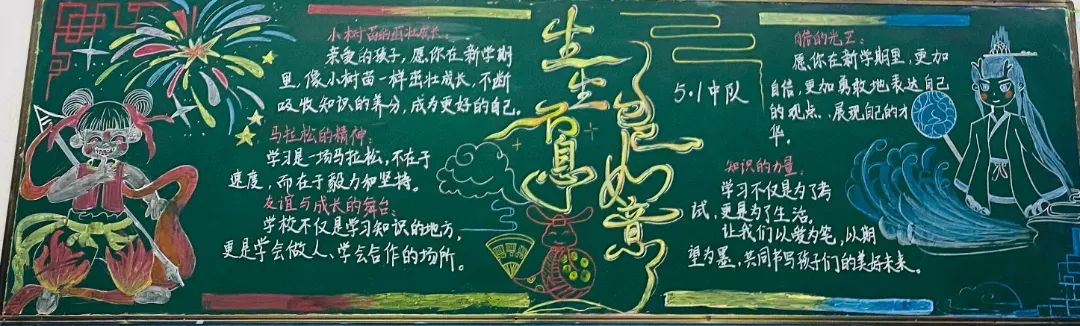 小树苗的茁壮成长:
亲爱的孩子，愿你在新学期
里，像小树苗一样茁壮成长，不断
吸收知识的养分，成为更好的自己。
马拉松的精神:
学习是一场马拉松，不在于
速度，而在于毅力和坚持。
友谊与成长的舞台:
学校不仅是学习知识的地方，
更是学会做人、学会合作的场所。
生生不息
巳巳如意
5.1中队
自信的光芒:
愿你在新学期里，更加
自信，更加勇敢地表达自己
的观点、展现自己的才
华。
知识的力量:
学习不仅是为了考
试，更是为了生活。
让我们以爱为笔，以期
望为墨，共同书写孩子们的美好未来。